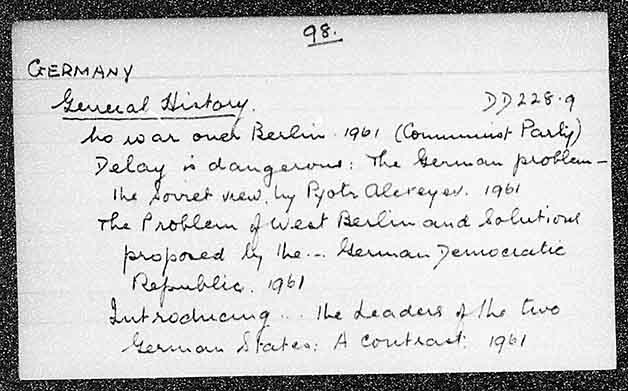 98.
GERMANY
General History. DD228.9
No war over Berlin. 1961 (Communist Party)
Delay is dangerous: The German problem -
the Soviet view, by Pyotr Alexeyev. 1961
The Problem of West Berlin and Solutions
proposed by the... German Democratic
Republic. 1961
Introducing... the Leaders of the two
German States: A contrast. 1961